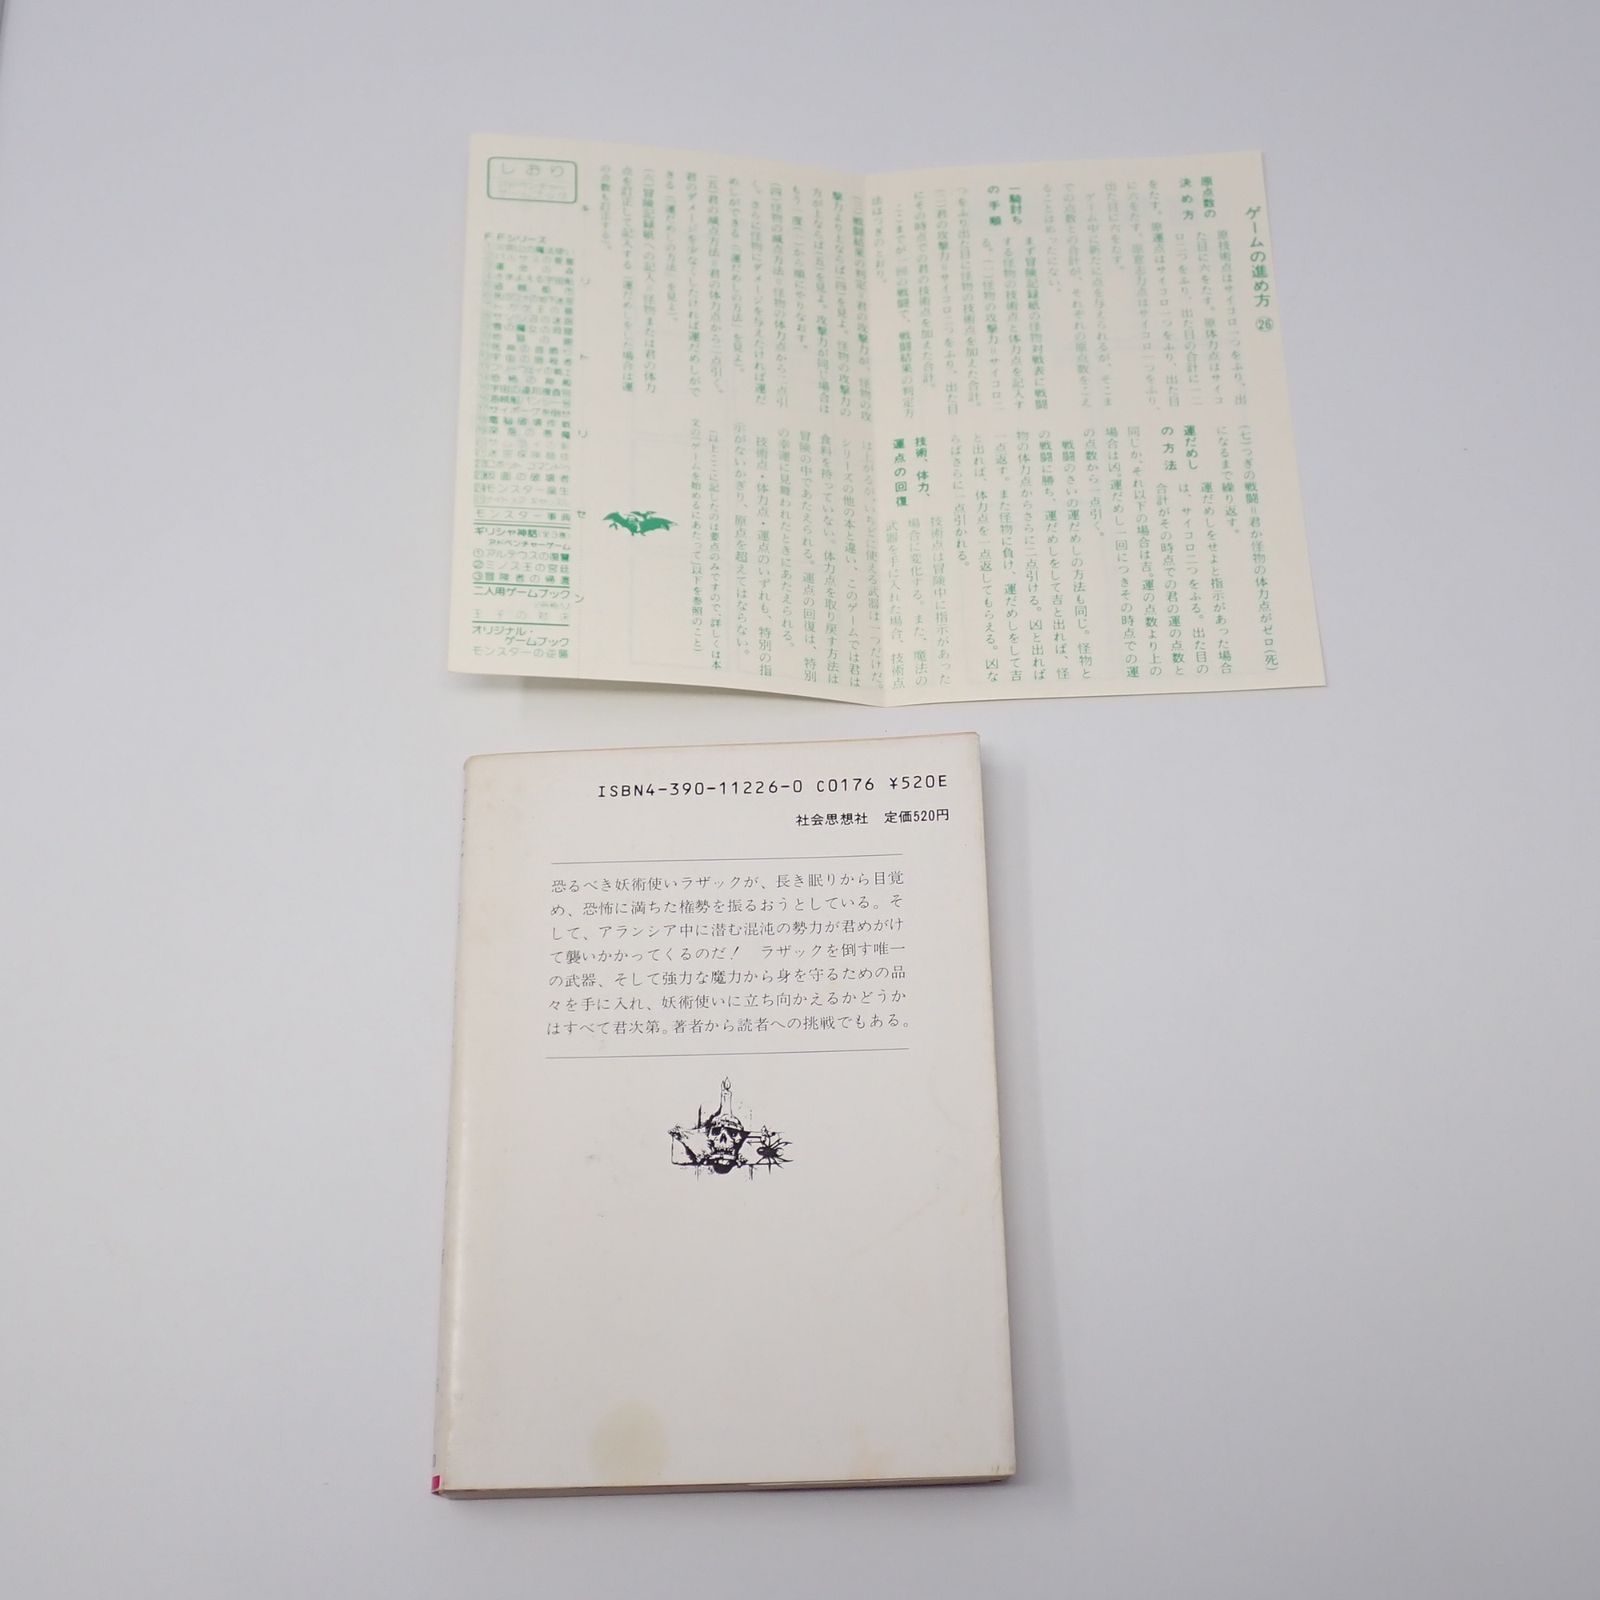 ゲームの進め方 ㉖
原点数の
決め方
原技術点はサイコロ一つをふり、出
た目に六をたす。原体力点はサイコ
ロ二つをふり、出た目の合計に一二
をたす。原運点はサイコロ一つをふり、出た目
に六をたす。原意志力点はサイコロ一つをふり、
出た目に六をたす。
ゲーム中に新たに点を与えられるが、そこま
での点数との合計が、それぞれの原点数をこえ
ることはめったにない。
一騎討ち
の手順
まず冒険記録紙の怪物対戦表に戦闘
する怪物の技術点と体力点を記入す
る。(一)怪物の攻撃力=サイコロ二
つをふり出た目に怪物の技術点を加えた合計。
(二)君の攻撃力=サイコロ二つをふり、出た目
にその時点での君の技術点を加えた合計。
ここまでが一回の戦闘で、戦闘結果の判定方
法はつぎのとおり。
(三)戦闘結果の判定=君の攻撃力が、怪物の攻
撃力より上ならば(四)を見よ。怪物の攻撃力の
方が上ならば(五)を見よ。攻撃力が同じ場合は
もう一度(一)から順にやりなおす。
(四)怪物の減点方法=怪物の体力点から二点引
く。さらに怪物にダメージを与えたければ運だ
めしができる(「運だめしの方法」を見よ)。
(五)君の減点方法=君の体力点から二点引く。
君のダメージを少なくしたければ運だめしがで
きる(「運だめしの方法」を見よ)。
(六)冒険記録紙への記入=怪物または君の体力
点を訂正して記入する(運だめしをした場合は運
の点数も訂正する)。
(七)つぎの戦闘=君か怪物の体力点がゼロ(死)
になるまで繰り返す。
運だめし
の方法
運だめしをせよと指示があった場合
は、サイコロ二つをふる。出た目の
合計がその時点での君の運の点数と
同じか、それ以下の場合は吉。運の点数より上の
場合は凶。運だめし一回につきその時点での運
の点数から一点引く。
戦闘のさいの運だめしの方法も同じ。怪物と
の戦闘に勝ち、運だめしをして吉と出れば、怪
物の体力点からさらに二点引ける。凶と出れば
一点返す。また怪物に負け、運だめしをして吉
と出れば、体力点を一点返してもらえる。凶な
らばさらに一点引かれる。
技術、体力、
運点の回復
技術点は冒険中に指示があった
場合に変化する。また、魔法の
武器を手に入れた場合、技術点
は上がるが、いちどに使える武器は一つだけだ。
シリーズの他の本と違い、このゲームでは君は
食料を持っていない。体力点を取り戻す方法は
冒険の中であたえられる。運点の回復は、特別
の幸運に見舞われたときにあたえられる。
技術点・体力点・運点のいずれも、特別の指
示がないかぎり、原点を超えてはならない。
(以上ここに記したのは要点のみですので、詳しくは本
文の「ゲームを始めるにあたって」以下を参照のこと)
しおり
FFシリーズ
モンスター誕生
モンスター事典
ギリシャ神話(全3巻)
アドベンチャーゲーム
①アルテウスの復讐
②ミノス王の宮廷
③冒険者の帰還
二人用ゲームブック
王子の対決
オリジナル・
ゲームブック
モンスターの逆襲
キリトリセン
ISBN4-390-11226-0 C0176 ¥520E
社会思想社 定価520円
恐るべき妖術使いラザックが、長き眠りから目覚
め、恐怖に満ちた権勢を振るおうとしている。そ
して、アランシア中に潜む混沌の勢力が君めがけ
て襲いかかってくるのだ! ラザックを倒す唯一
の武器、そして強力な魔力から身を守るための品
々を手に入れ、妖術使いに立ち向かえるかどうか
はすべて君次第。著者から読者への挑戦でもある。